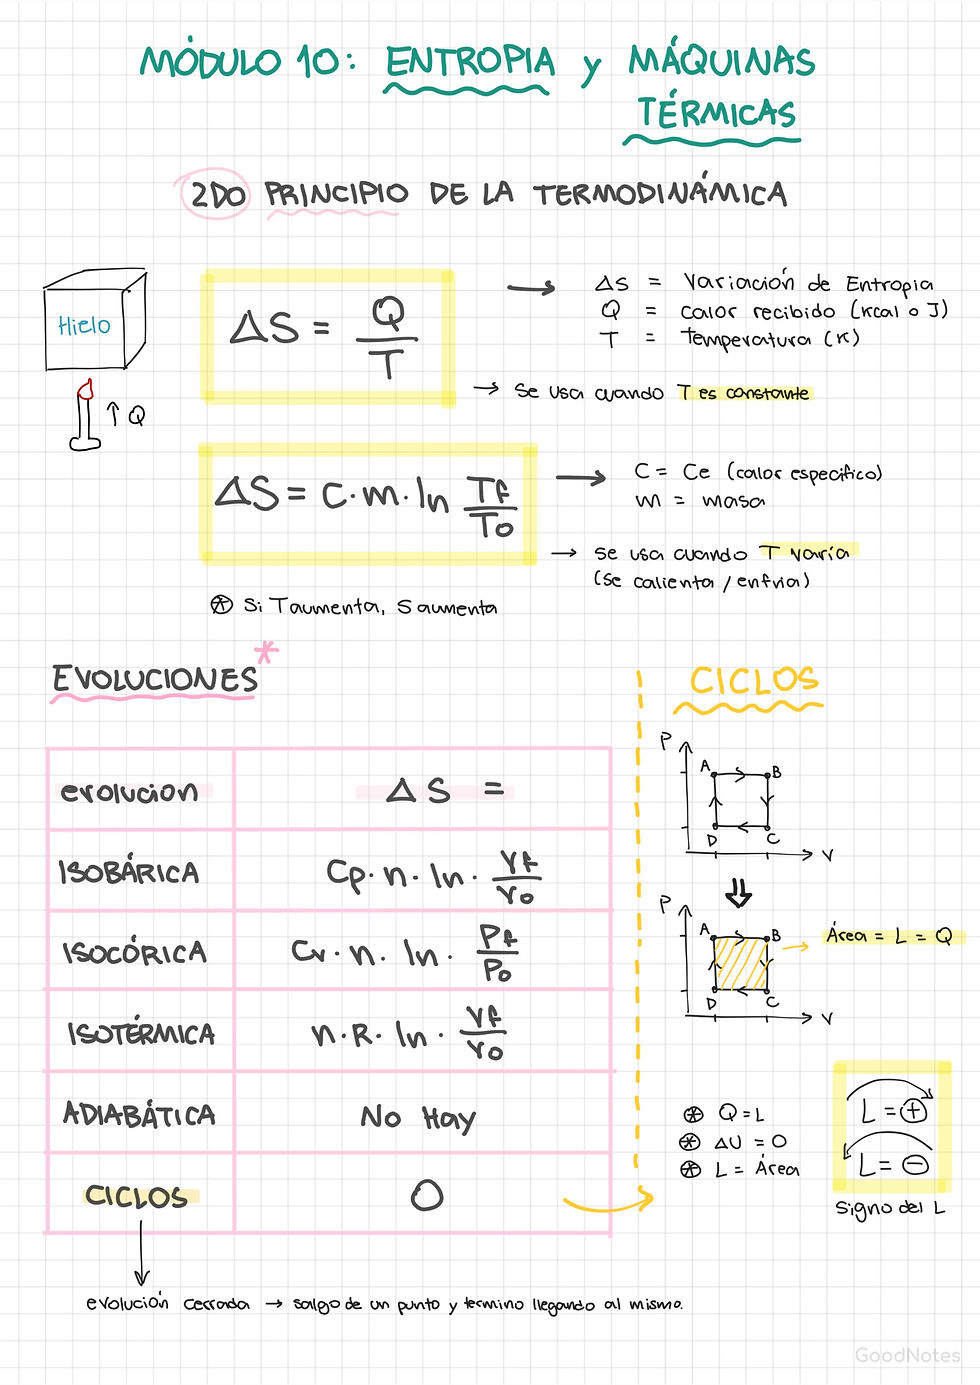 MÓDULO 10: ENTROPIA y MÁQUINAS
TÉRMICAS
2DO PRINCIPIO DE LA TERMODINÁMICA
Hielo
↑ Q
ΔS = Q/T
→ ΔS = Variación de Entropia
Q = calor recibido (kcal o J)
T = Temperatura (K)
→ Se usa cuando T es constante
ΔS = C·m·ln Tf/To
→ C = Ce (calor especifico)
m = masa
→ se usa cuando T varía
(se calienta / enfria)
⊛ Si T aumenta, S aumenta
EVOLUCIONES*
evolucion ΔS =
ISOBÁRICA Cp·n·ln· Vf/Vo
ISOCÓRICA Cv·n·ln· Pf/Po
ISOTÉRMICA n·R·ln· Vf/Vo
ADIABÁTICA No Hay
CICLOS 0
evolución cerrada → salgo de un punto y termino llegando al mismo.
CICLOS
P
A B
D C
V
⇓
P
A B
D C
V
→ Área = L = Q
⊛ Q=L
⊛ ΔU = 0
⊛ L = Área
L = ⊕
L = ⊖
signo del L
GoodNotes